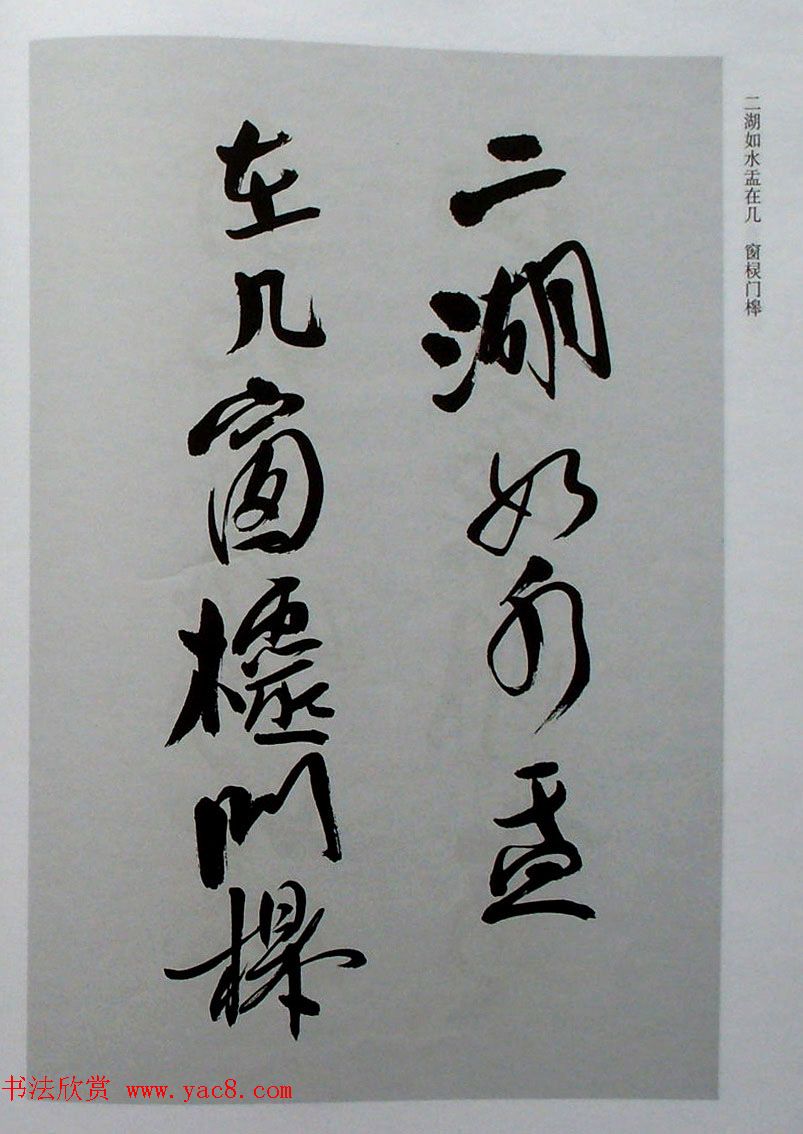 二湖如水盂
在几窗櫺门槔
二湖如水盂在几 窗棂门槔
书法欣赏 www.yac8.com